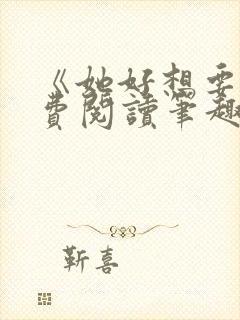 《她好想要
費閱讀筆趣
靳喜